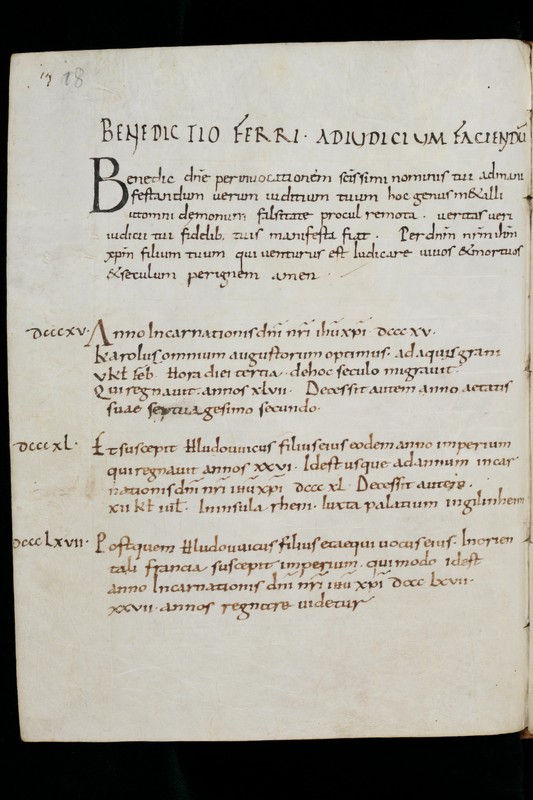 18
BENEDICTIO FERRI · AD IUDICIUM FACIENDŪ
Benedic dn̄e per invocationem sc̄issimi nominis tui ad mani
festandum verum iuditium tuum hoc genus metalli
ut omni demonum falsitate procul remota · veritas veri
iudicii tui fidelib; tuis manifesta fiat · Per dn̄m nr̄m ihm̄
xp̄m filium tuum qui venturus est Iudicare vivos & mortuos
& seculum per ignem amen ·
dcccxv · Anno Incarnationis dn̄i nr̄i ihū xp̄i · dccc xv ·
karolus omnium augustorum optimus · ad aquisgrani
v kl̄ feb · Hora diei tertia · de hoc seculo migravit ·
Qui regnavit · annos xlvii · Decessit autem anno aetatis
suae septuagesimo secundo ·
dccc xl · Et suscepit Hludouuicus filius eius eodem anno imperium
qui regnavit annos xxvi · Id est usque ad annum incar
nationis dn̄i nr̄i ihū xp̄i dccc xl · Decessit autem ·
xii kl̄ iul̄ · In insula rheni · Iuxta palatium ingilinheim
dccc lxvii · Postquem Hludouuicus filius et aequivocus eius · In orien
tali francia suscepit imperium · qui modo id est
anno Incarnationis dn̄i nr̄i ihū xp̄i dccc lxvii ·
xxvii · annos regnare videtur